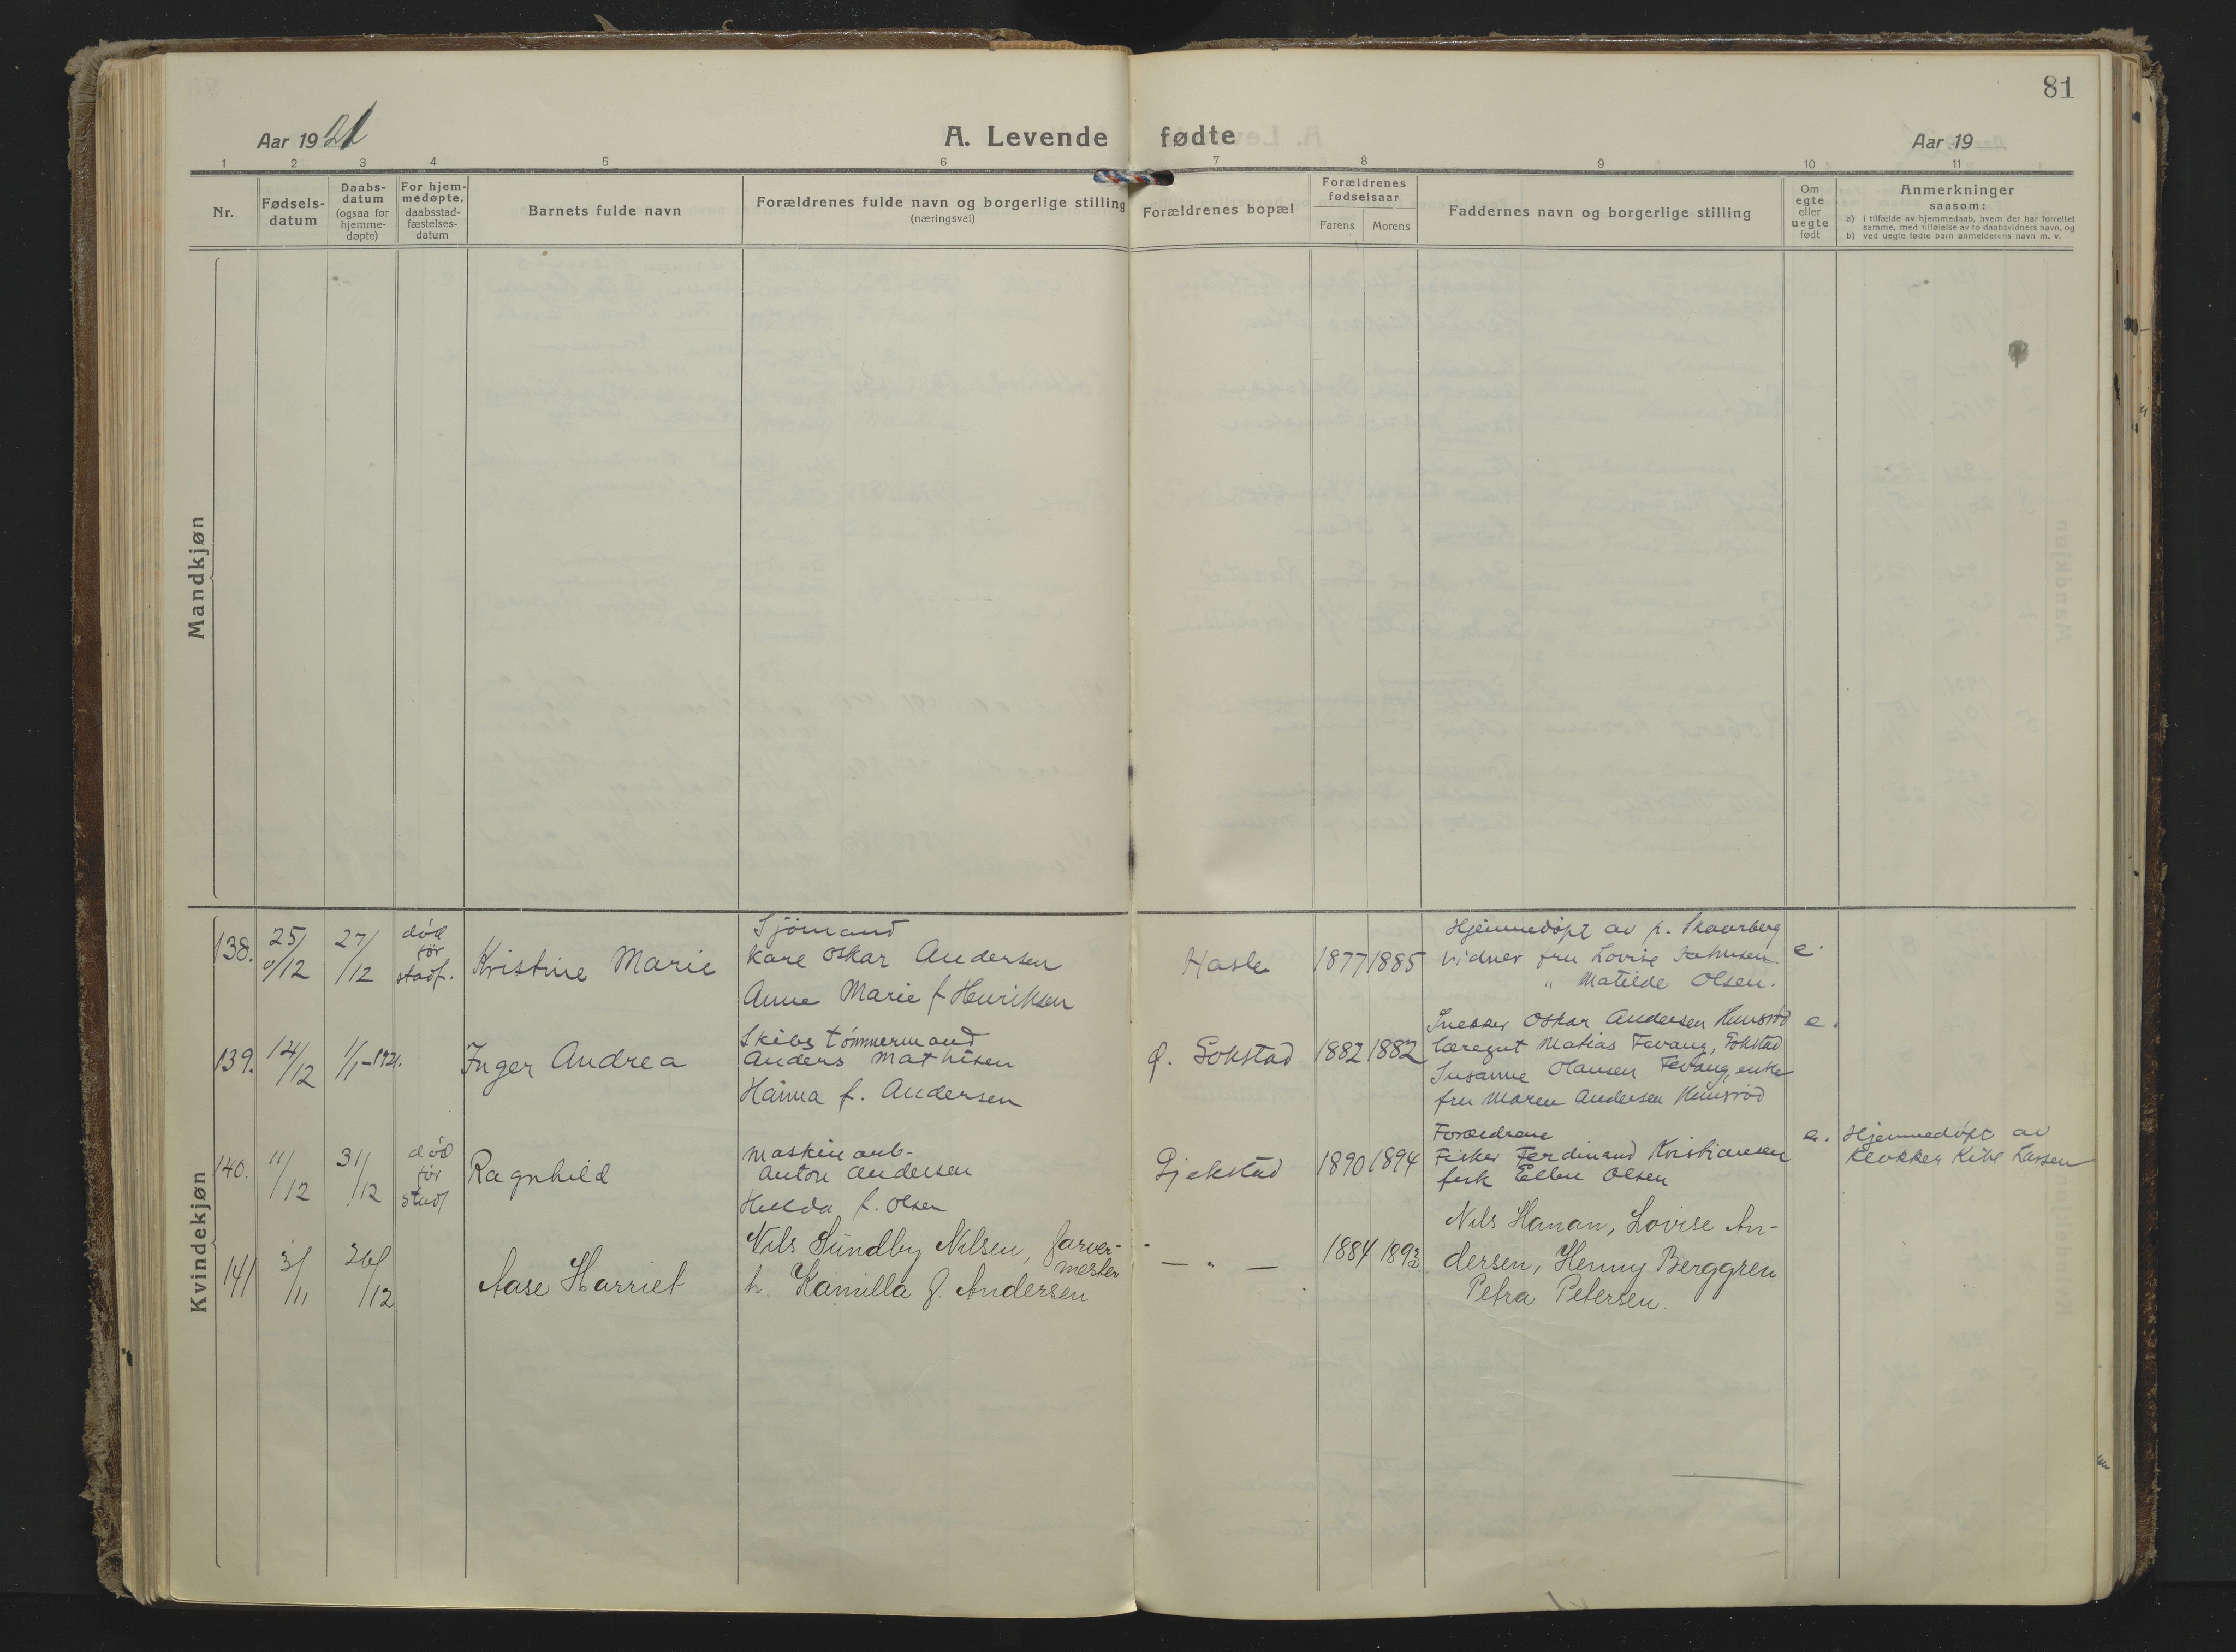 81
Aar 1921
A. Levende fødte
Aar 19
1 2 3 4 5 6 7 8 9 10 11
Nr.
Fødsels-
datum
Daabs-
datum
(ogsaa for
hjemme-
døpte)
For hjem-
medøpte,
daabsstad-
fæstelses-
datum
Barnets fulde navn
Forældrenes fulde navn og borgerlige stilling
(næringsvei)
Forældrenes bopæl
Forældrenes
fødselsaar
Farens Morens
Faddernes navn og borgerlige stilling
Om
egte
eller
uegte
født
Anmerkninger
saasom:
a) i tilfælde av hjemmedaab, hvem der har forrettet
samme, med tilføielse av to daabsvidners navn, og
b) ved uegte fødte barn anmelderens navn m. v.
Mandkjøn
Kvindekjøn
138.
25/12
27/12
død
før
stadf.
Kristine Marie
Sjömand
Kare Oskar Andersen
Anne Marie f Henriksen
Hasle
1877 1885
Hjemmedøpt av p. Skaarberg
vidner fru Lovise
" Matilde Olsen.
e.
139.
14/12
1/1-1921.
Inger Andrea
Skibstömmermand
Anders Mathisen
Hanna f. Andersen
Ø. Gokstad
1882 1882
Oskar Andersen
Matias Fevang, Gokstad
Susanne Olausen Fevang, enke
fru Maren Andersen
e.
140.
11/12
31/12
död
før
stadf
Ragnhild
maskinarb-
Anton Andersen
Hilda f. Olsen
Gjekstad
1890 1894
Forældrene
Fisker Ferdinand Kristiansen
frk Ellen Olsen
e.
Hjemmedøpt av
klokker Larsen
141
3/11
26/12
Aase Harriet
Nils Sundby Nilsen, farver-
mester
h. Kamilla f. Andersen
— " —
1884 1893.
Nils Hanan, Lovise An-
dersen, Henny Berggren
Petra Petersen.